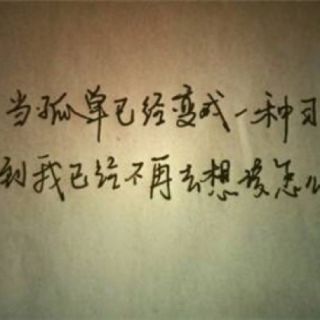 当孤单已经变成一种习
到我已经不再去想该怎么